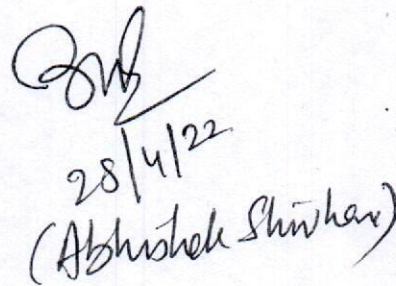 28/4/22
(Abhishek Shivhare)